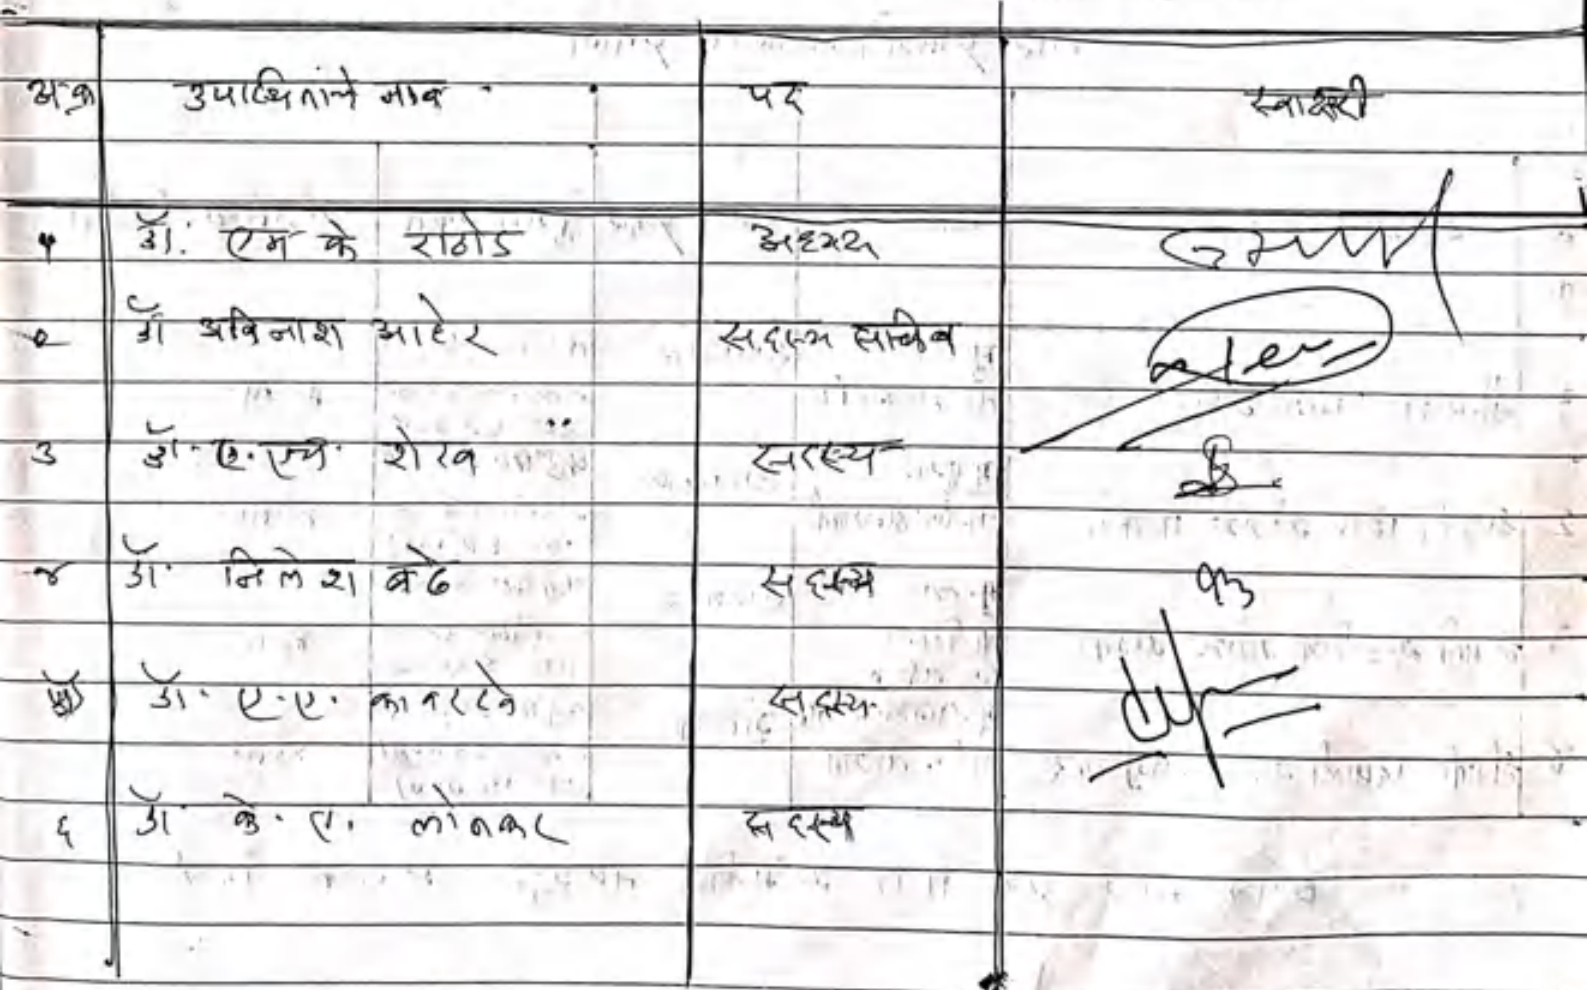 अ.क्र उपस्थितांचे नाव पद स्वाक्षरी
१ डॉ. एम के राठोड अध्यक्ष
२ डॉ अविनाश आहेर सदस्य सचिव
३ डॉ. ए. एच. शेख सदस्य
४ डॉ. निलेश बढे सदस्य
डॉ. ए. ए. सदस्य
६ डॉ के. ए. लोनकर सदस्य